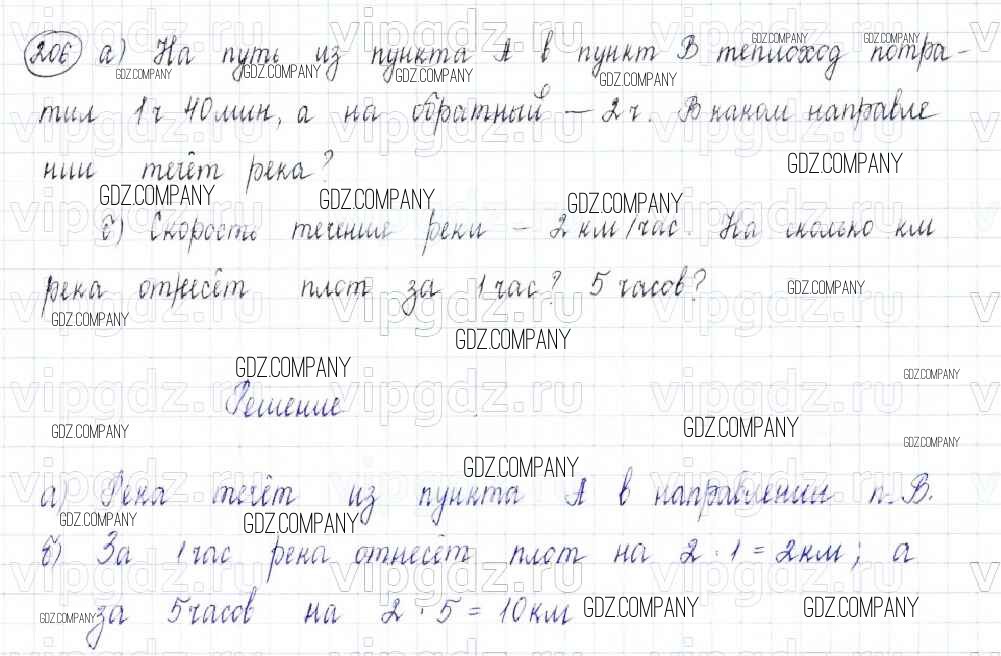 206 а) На путь из пункта А в пункт В теплоход потра-
тил 1ч 40мин, а на обратный – 2ч. В каком направле
нии течёт река?
б) Скорость течения реки – 2км/час. На сколько км
река отнесёт плот за 1час? 5 часов?
Решение
а) Река течёт из пункта А в направлении п. В.
б) За 1час река отнесёт плот на 2 · 1 = 2км; а
за 5часов на 2 · 5 = 10км